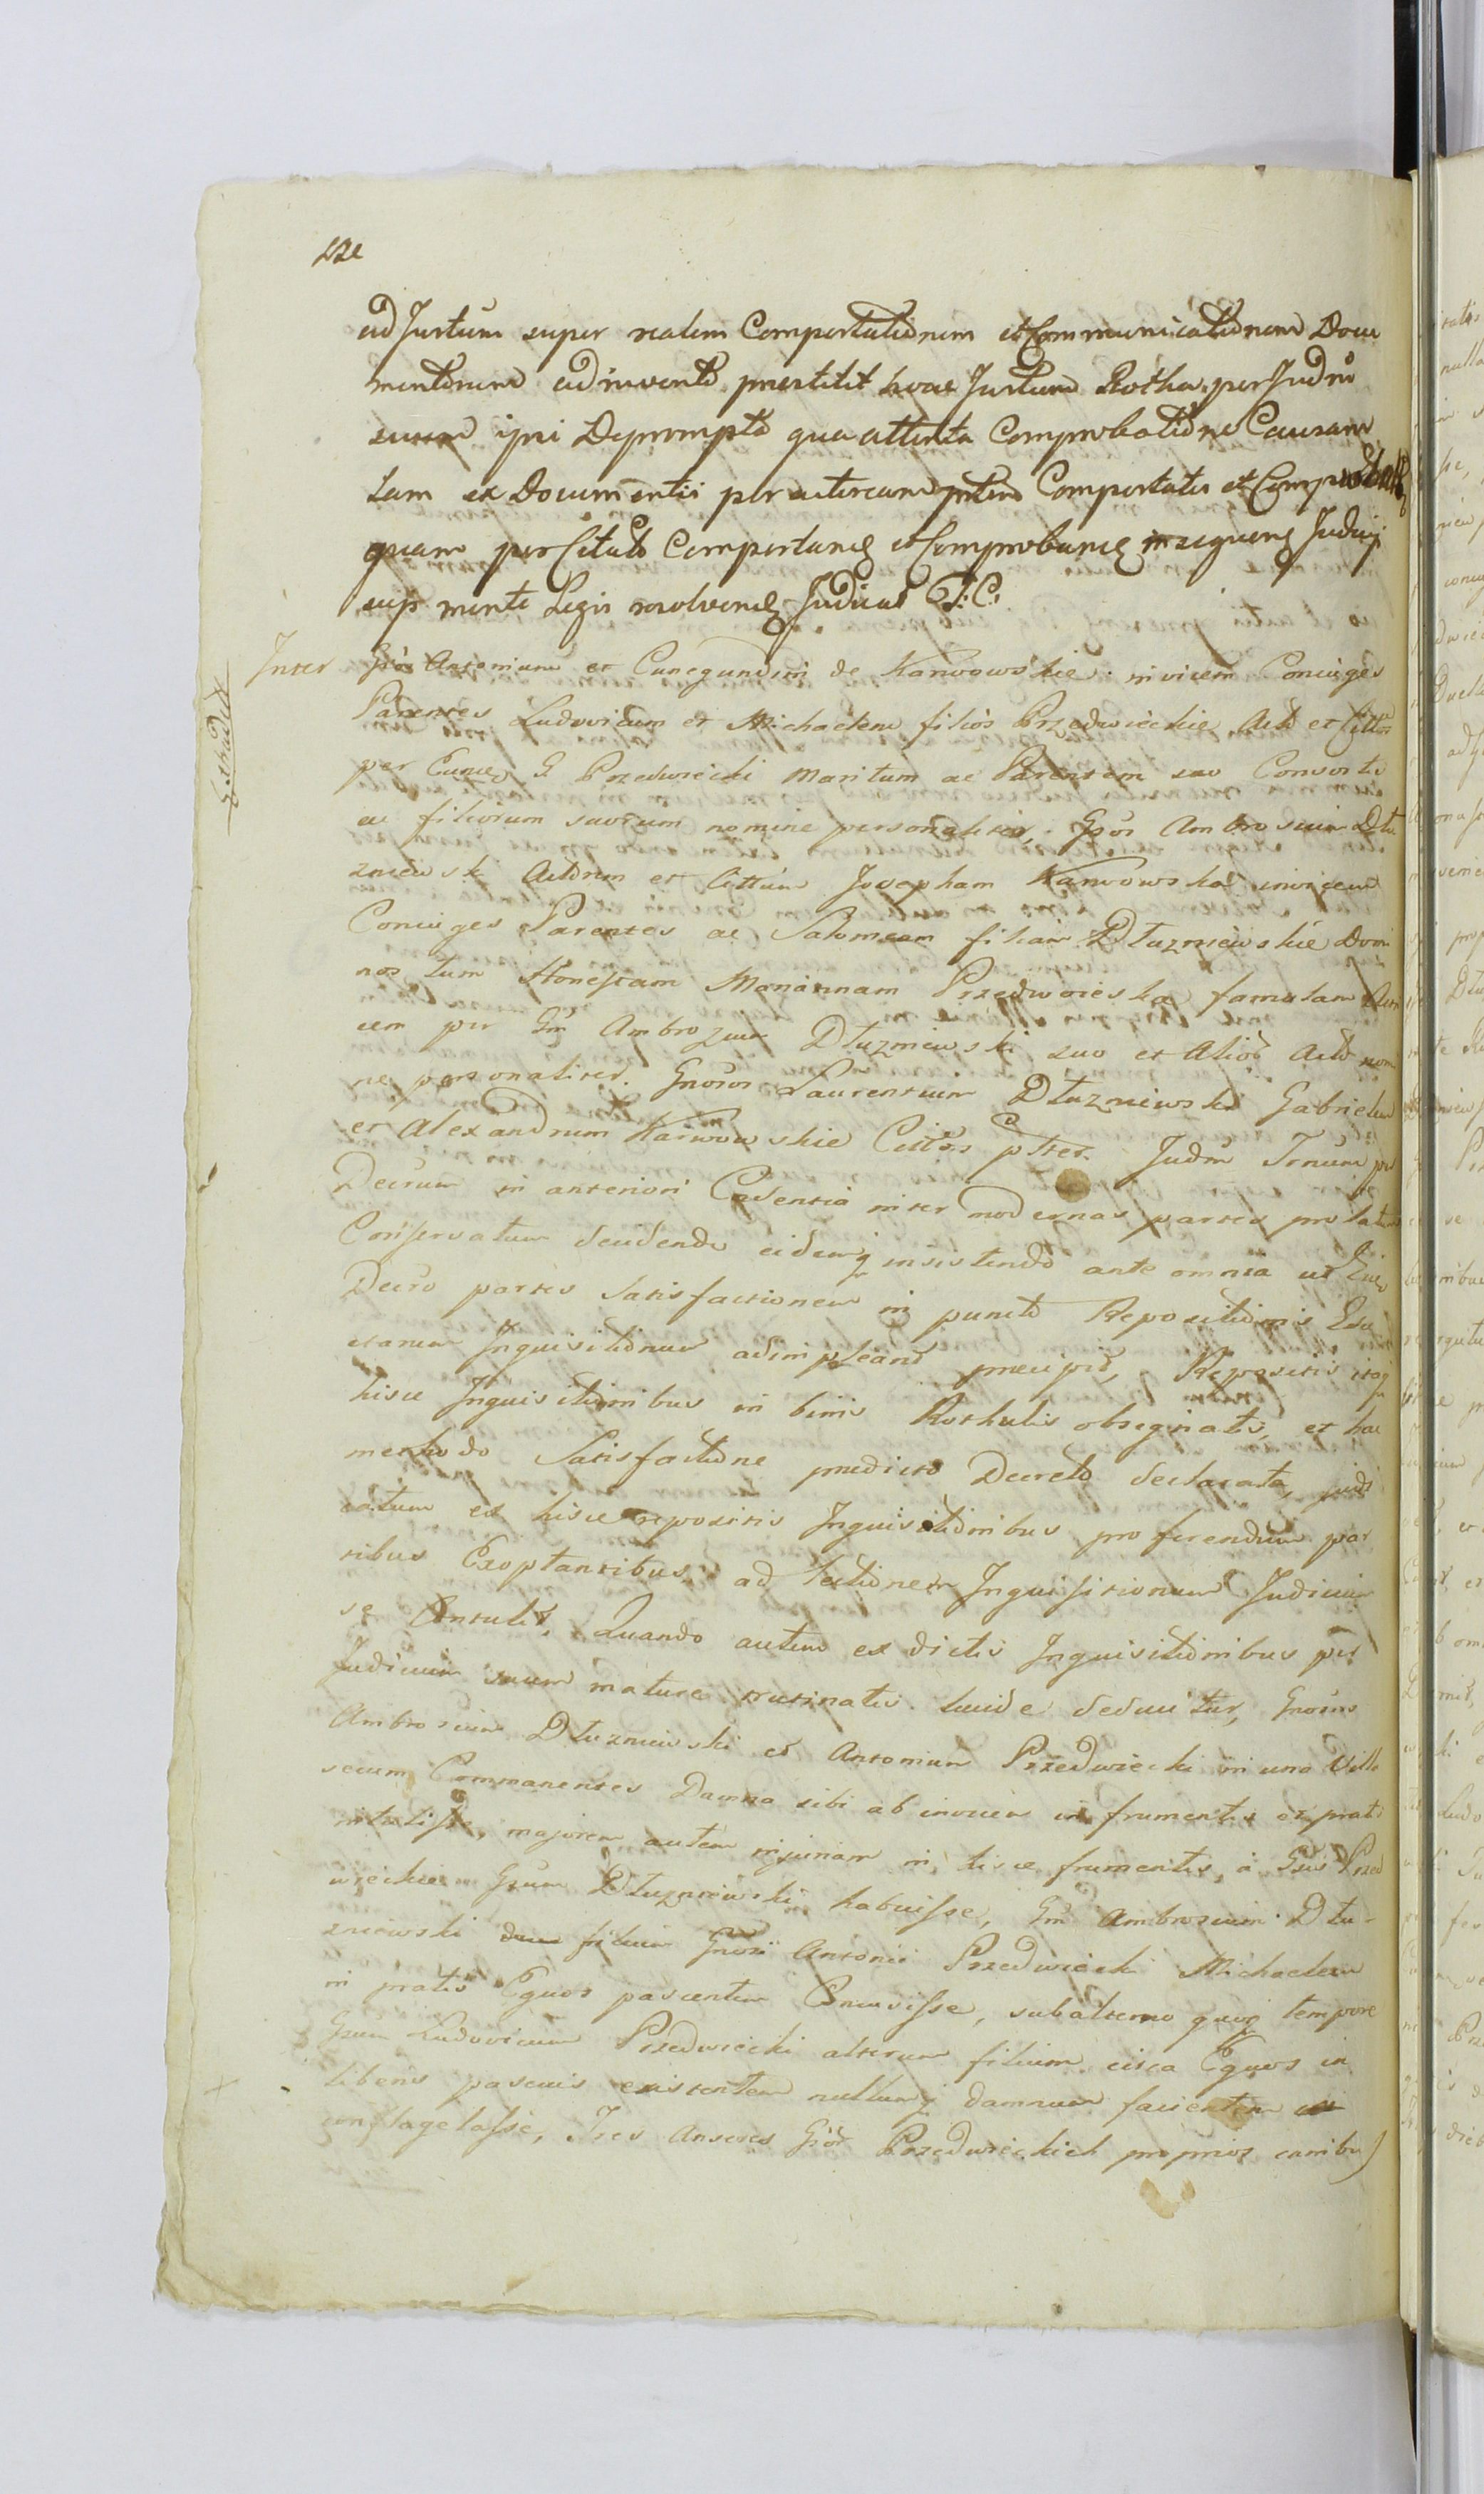 ad Juramentum super realem Comportationem et Communicationem Docu
mentorum adinvento praestitit hocce Juratum Rotha per Judm
suum ipsi Deprompta qua attenta Comprobatione Causam
tam ex Documentis per actoream ptem Comportatis et
quam per Citat Comportand et Comproband insequen Judicij
sui mente Legis resolvend Judicat T: C:
Inter Gsos Antonium et Cunegundim de Karwowskie invicem Conjuges
Extrad
Parentes Ludovicum et Michaelem filios Przedwieckie Act et Cittos
per Eund G Przedwiecki Maritum ac Parentem suo Consortis
ac filiorum suorum nomine personaliter, Gsos Ambrosium Dlu
zniewski Actorem et Cittum Josepham Karwowska invicem
Conjuges Parentes ac Salomeam filiam Dłuzniewskie Domi
nos tum Honestam Mariannam Przedworska famulam
cem per Gm Ambrozium Dłuzniewski suo et Alior Act nomi
ne personaliter. Gnosos Laurentium Dłuzniewski Gabrielem
et Alexandrum Karwowskie Cittos pltter. Judm Trnum per
Decrum in anteriori Cadentia inter modernas partes prolatum
Conservatum studendo eidemq insistendo ante omnia ut Eid
Decro partes Satisfactionem in puncto Repositionis Edu
ctarum Inquisitionum adimpleand praecipit, Repositis itaq
hisce Inquisitionibus in binis Rothulis obsignatis, et hac
methodo Satisfactione praedicto Decreto declarata, judi
catum ex hisce repositis Inquisitionibus proferendum par
tibus Exoptantibus ad lectionem Inquisitionum Judicium
se Contulit, Quando autem ex dictis Inquisitionibus per
Judicium suum mature trutinatis lucide deducitur, Gnosos
Ambrosium Dłuzniewski et Antonium Przedwiecki in una Villa
secum Commanentes Damna sibi ab invicem in frumentis et pratis
intulisse, majorem autem injuriam in hisce frumentis, à Gsis Przed
wieckie Gsum Dłuzniewski habuisse, Gm Ambrosium Dłu-
zniewski filium Gnosi Antonii Przedwiecki Michaelem
in pratis Equos pascentem Concusisse, subalterno quoq tempore
Gsum Ludovicum Przedwiecki alterum filium circa Equos in
liberis pascuis existentem nullumq damnum facientem
conflagelasse, Tres Anseres Gsor Przedwieckich proprios canibus